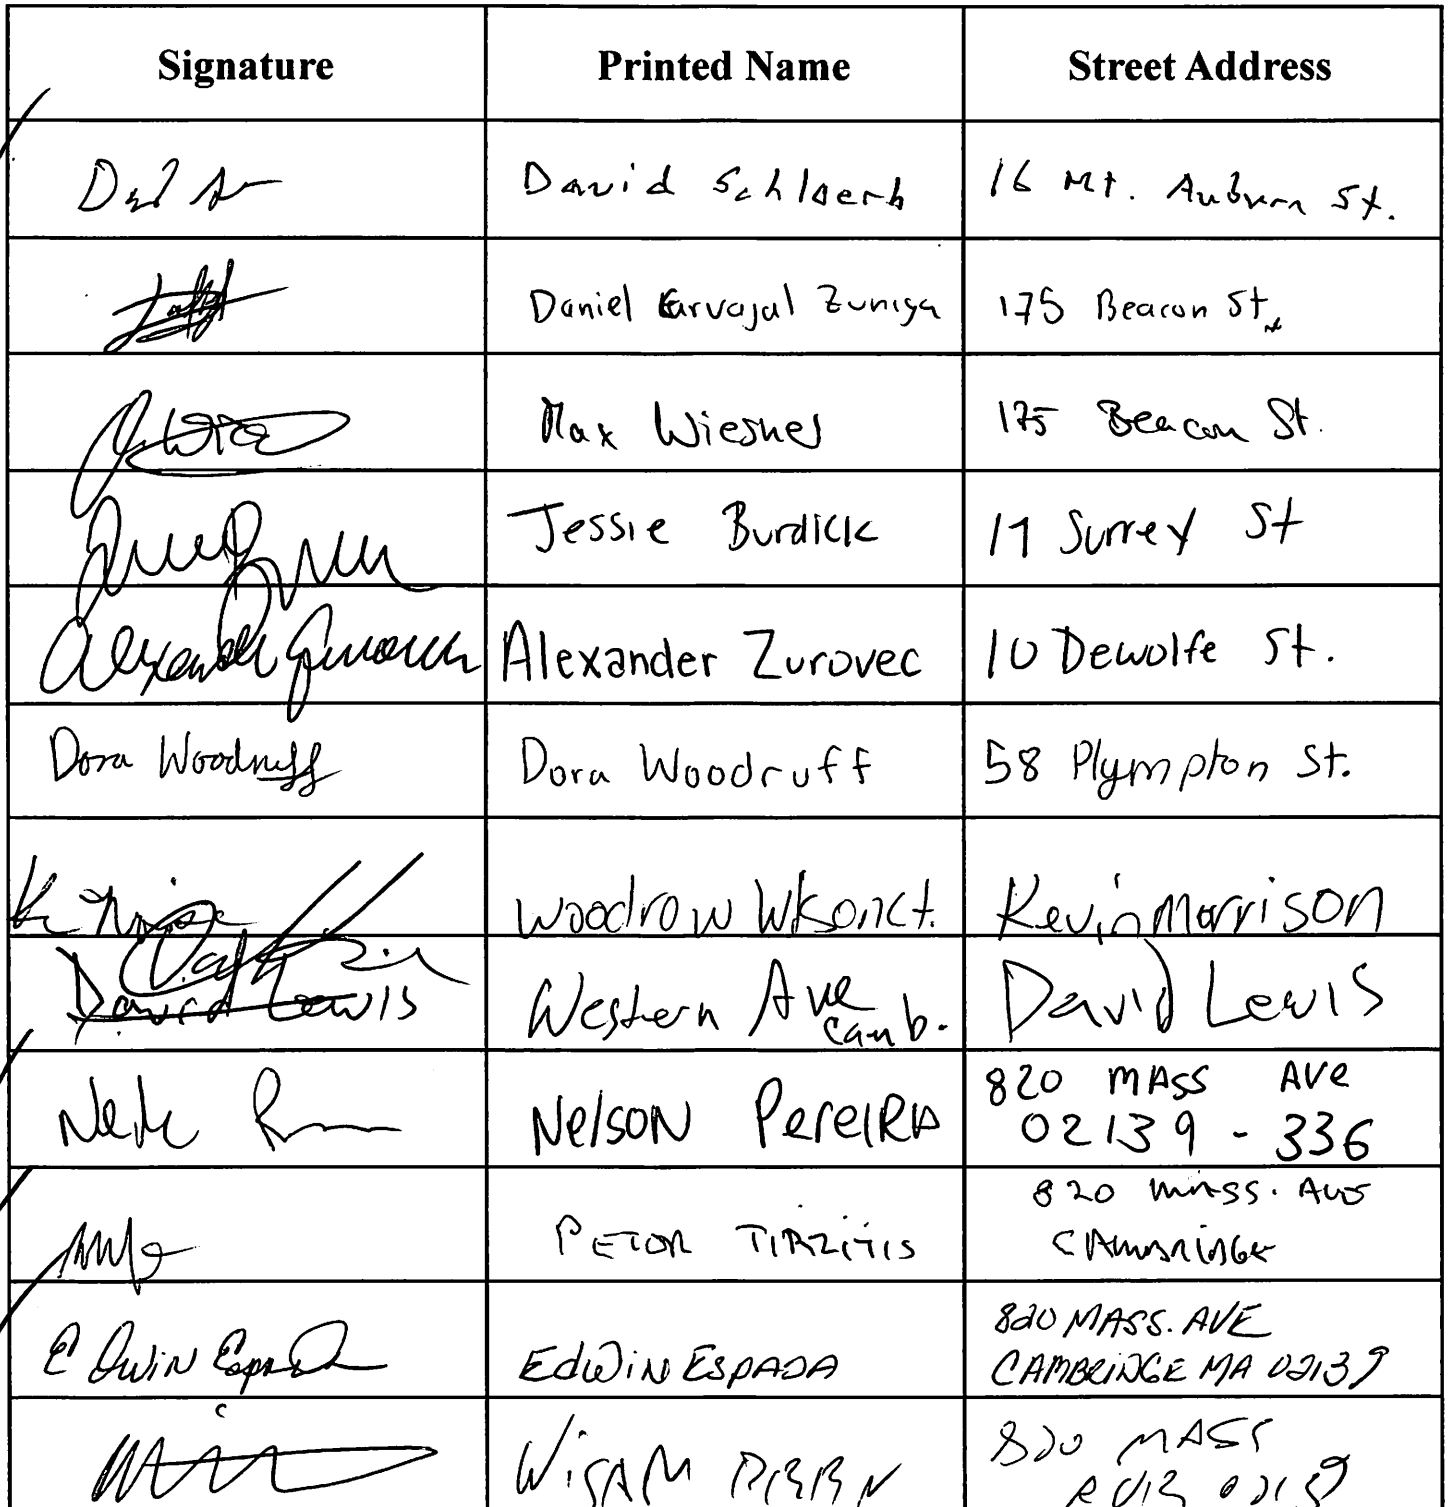 Signature Printed Name Street Address
David Schloerb 16 Mt. Auburn St.
Daniel Carvajal Zuniga 175 Beacon St.
Max Wiesner 175 Beacon St.
Jessie Burdick 17 Surrey St
Alexander Zurovec Alexander Zurovec 10 Dewolfe St.
Dora Woodruff Dora Woodruff 58 Plympton St.
Woodrow Wilson ct. Kevin Morrison
David Lewis Western Ave David Lewis
Camb.
Nelson Pereira 820 MASS AVE
02139 - 336
820 MASS. AVE
PETER TIRZITIS CAMBRIDGE
820 MASS. AVE
Edwin Espada Edwin ESPADA CAMBRIDGE MA 02139
WISAM 820 MASS